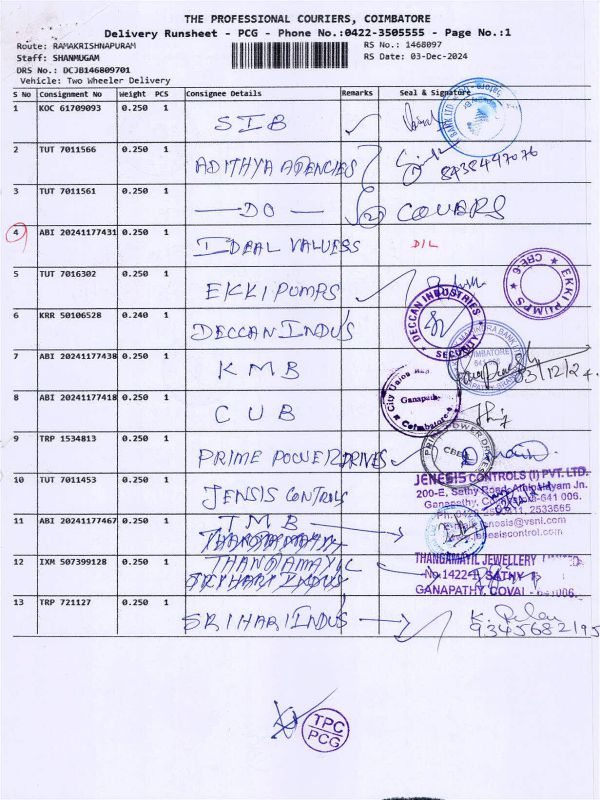 THE PROFESSIONAL COURIERS, COIMBATORE
Delivery Runsheet - PCG - Phone No.:0422-3505555 - Page No.:1
Route: RAMAKRISHNAPURAM
RS No.: 1468097
Staff: SHANMUGAM
RS Date: 03-Dec-2024
DRS No.: DCJB146809701
Vehicle: Two Wheeler Delivery
S No Consignment No Weight PCS Consignee Details Remarks Seal & Signature
1 KOC 61709093 0.250 1 SIB
2 TUT 7011566 0.250 1 ADITHYA AGENCIES 8438447076
3 TUT 7011561 0.250 1 —DO— 2 COVERS
4 ABI 20241177431 0.250 1 IDEAL VALUESS D/L
5 TUT 7016302 0.250 1 EKKI PUMPS
EKKI PUMPS
CBE-6
6 KRR 50106528 0.240 1 DECCAN INDUS
DECCAN INDUSTRIES
SECURITY
7 ABI 20241177438 0.250 1 KMB
COIMBATORE
03/12/24
8 ABI 20241177418 0.250 1 CUB
City Union
Ganapathy
Coimbatore
9 TRP 1534813 0.250 1 PRIME POWER DRIVES
PRIME POWER DRIVES
CBE
10 TUT 7011453 0.250 1 JENSIS CONTROLS
JENESIS CONTROLS (I) PVT. LTD.
200-E, Sathy Road, Athipalayam Jn.
Ganapathy, 641 006.
2533565
jenesis@vsnl.com
www.jenesiscontrol.com
11 ABI 20241177467 0.250 1 TMB
12 IXM 507399128 0.250 1 THANGAMAYIL
SRIHARI INDUS
THANGAMAYIL JEWELLERY
No.1422 SATHY
GANAPATHY, COVAI
13 TRP 721127 0.250 1 SRIHARI INDUS
9345682195
TPC
PCG